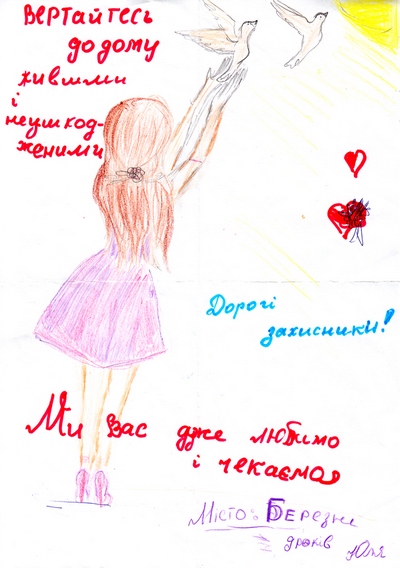 Вертайтесь
додому
живими
і
неушкод-
женими
Дорогі
захисники!
Ми вас дже любимо
і чекаємо
Місто
Юля